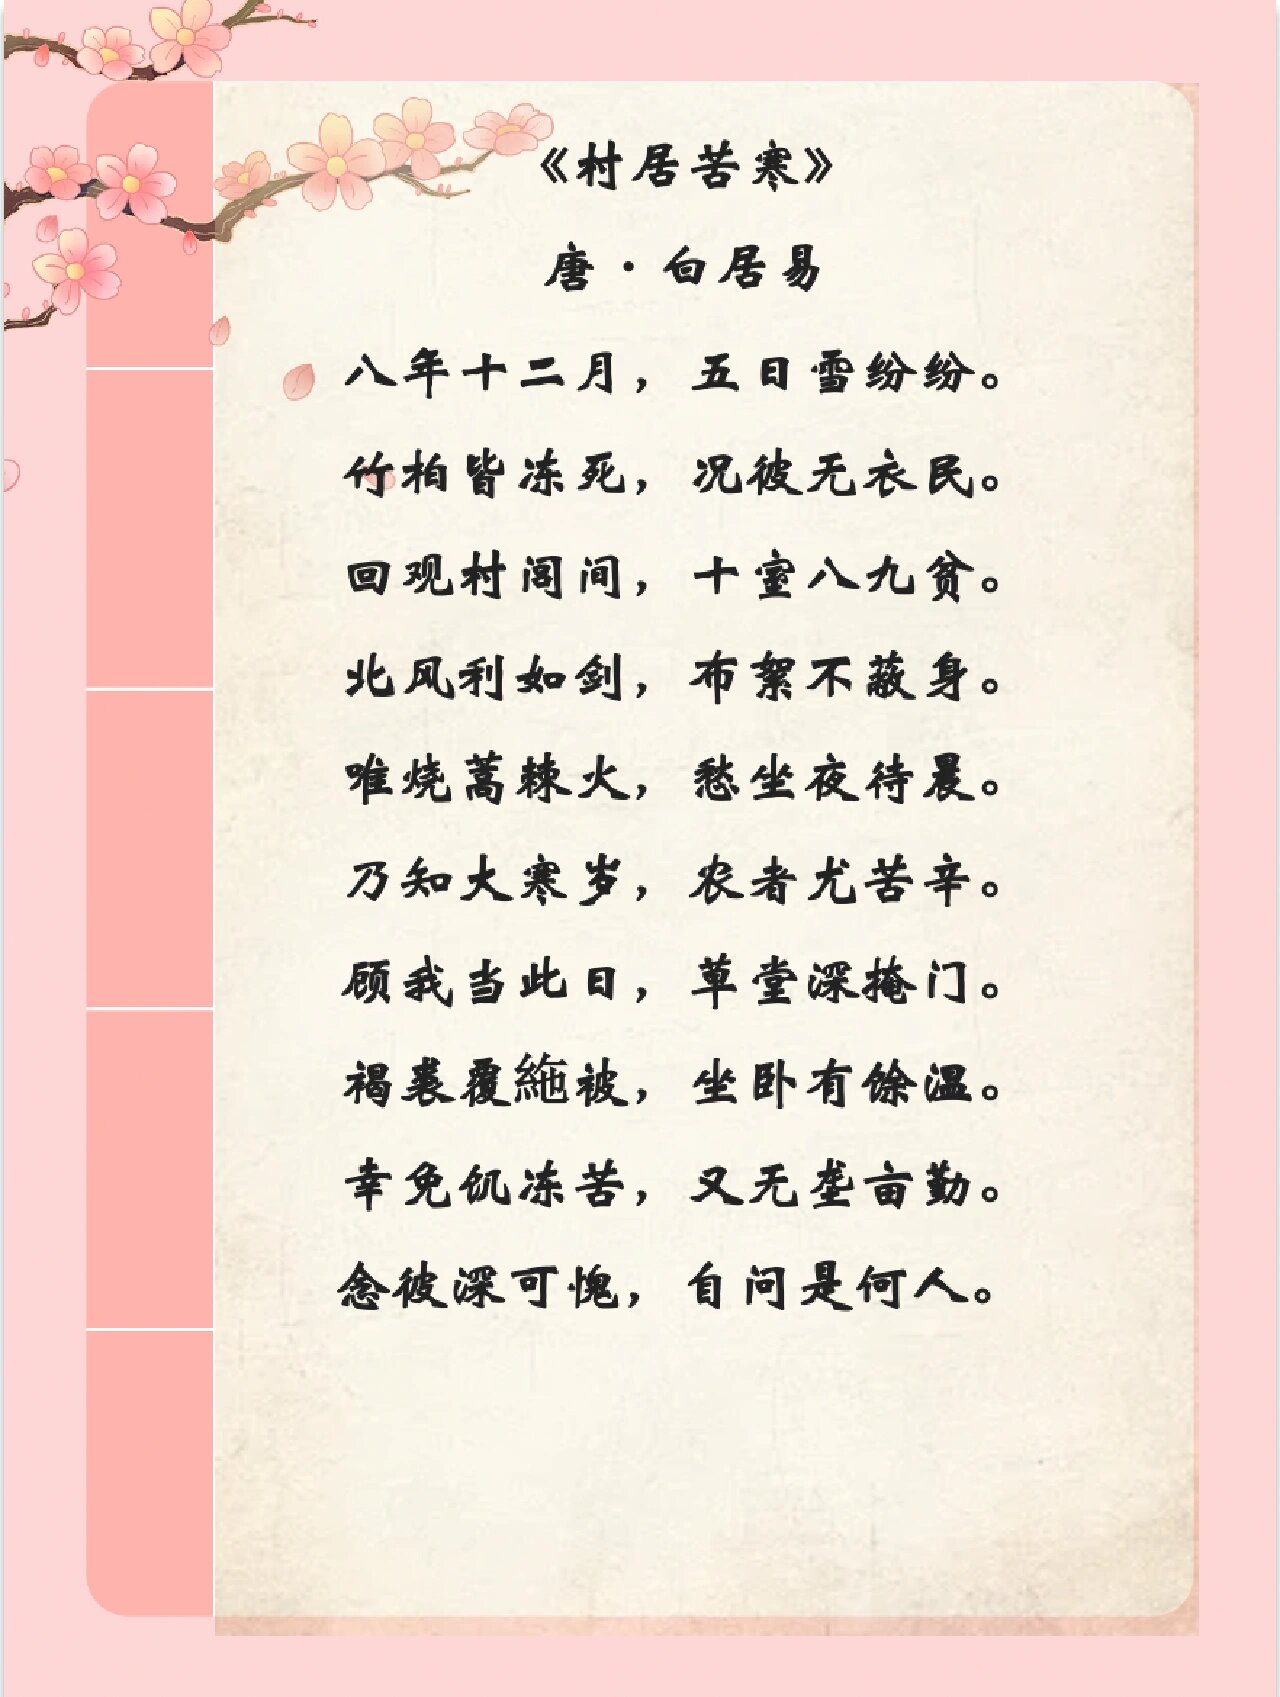 《村居苦寒》
唐·白居易
八年十二月，五日雪纷纷。
竹柏皆冻死，况彼无衣民。
回观村闾间，十室八九贫。
北风利如剑，布絮不蔽身。
唯烧蒿棘火，愁坐夜待晨。
乃知大寒岁，农者尤苦辛。
顾我当此日，草堂深掩门。
褐裘覆絁被，坐卧有馀温。
幸免饥冻苦，又无垄亩勤。
念彼深可愧，自问是何人。